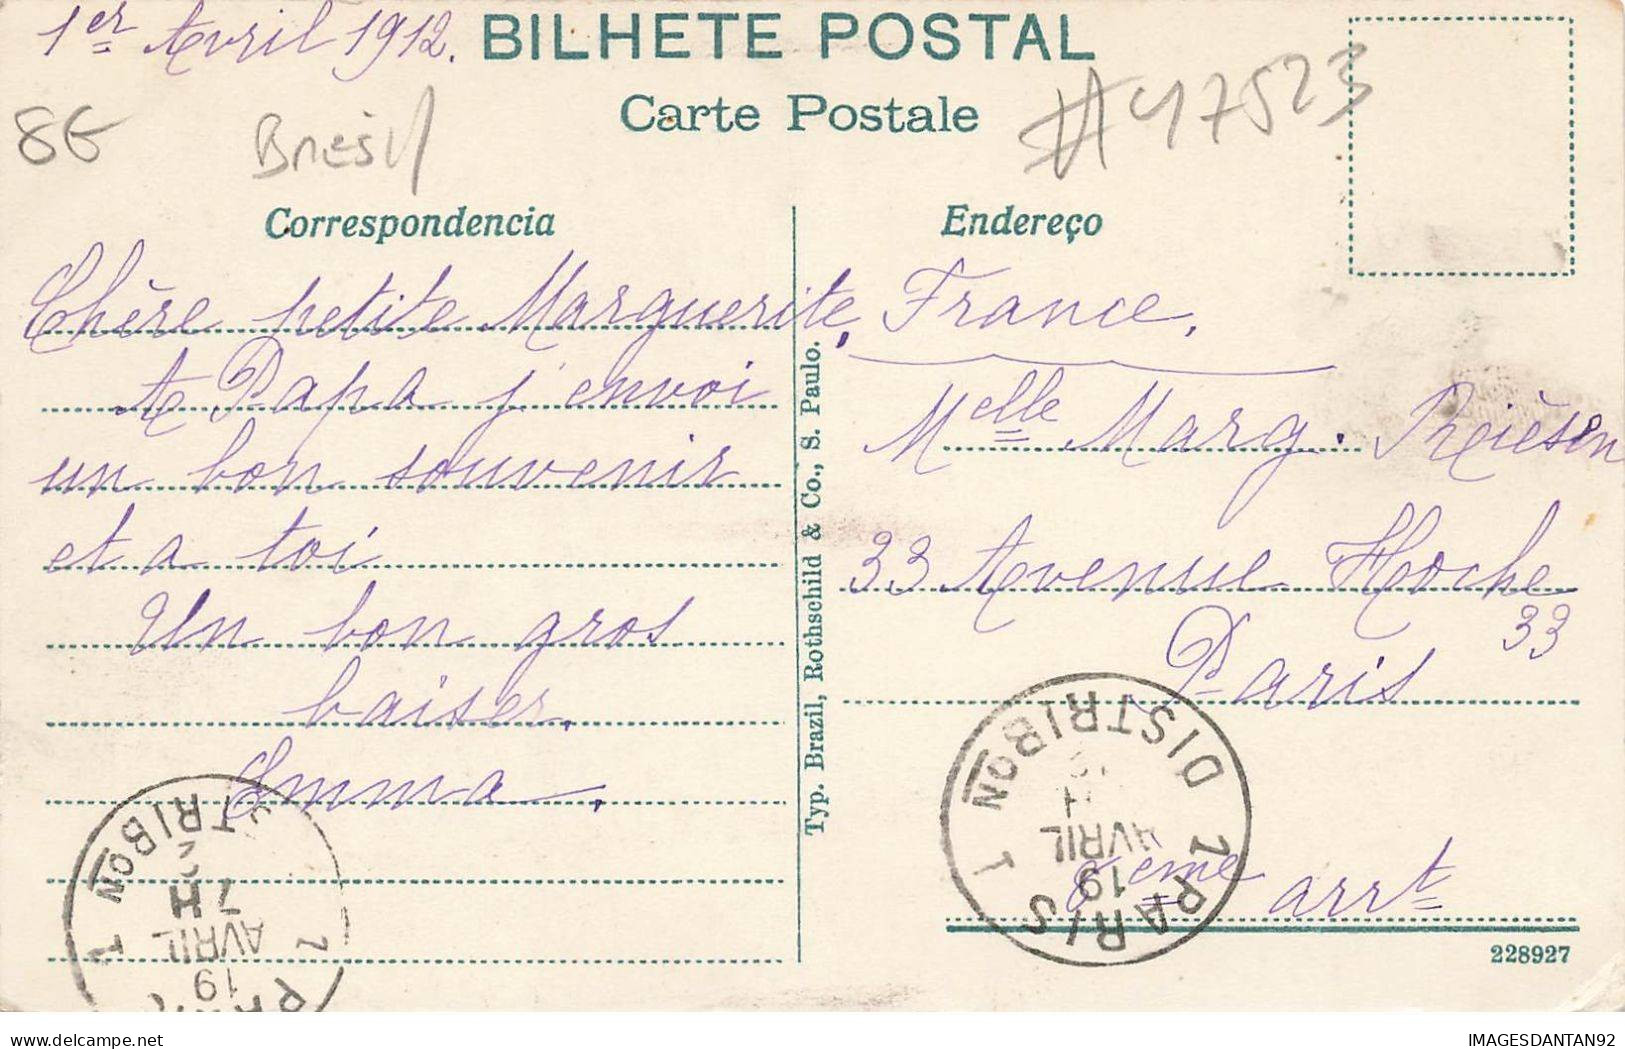 1er Avril 1912.
BILHETE POSTAL
Carte Postale
8€
Brésil
#47523
Correspondencia
Endereço
Chère petite Marguerite,
A Papa j'envoi
un bon souvenir
et a toi
Un bon gros
baiser.
Emma.
Typ. Brazil, Rothschild & Co., S. Paulo.
France.
Melle Marg.
33 Avenue Hoche
33
Paris
8ème arrt
228927
PARIS 1 DISTRIBON
7H
AVRIL
19
PARIS 1 DISTRIBON
AVRIL
19
IMAGESDANTAN92